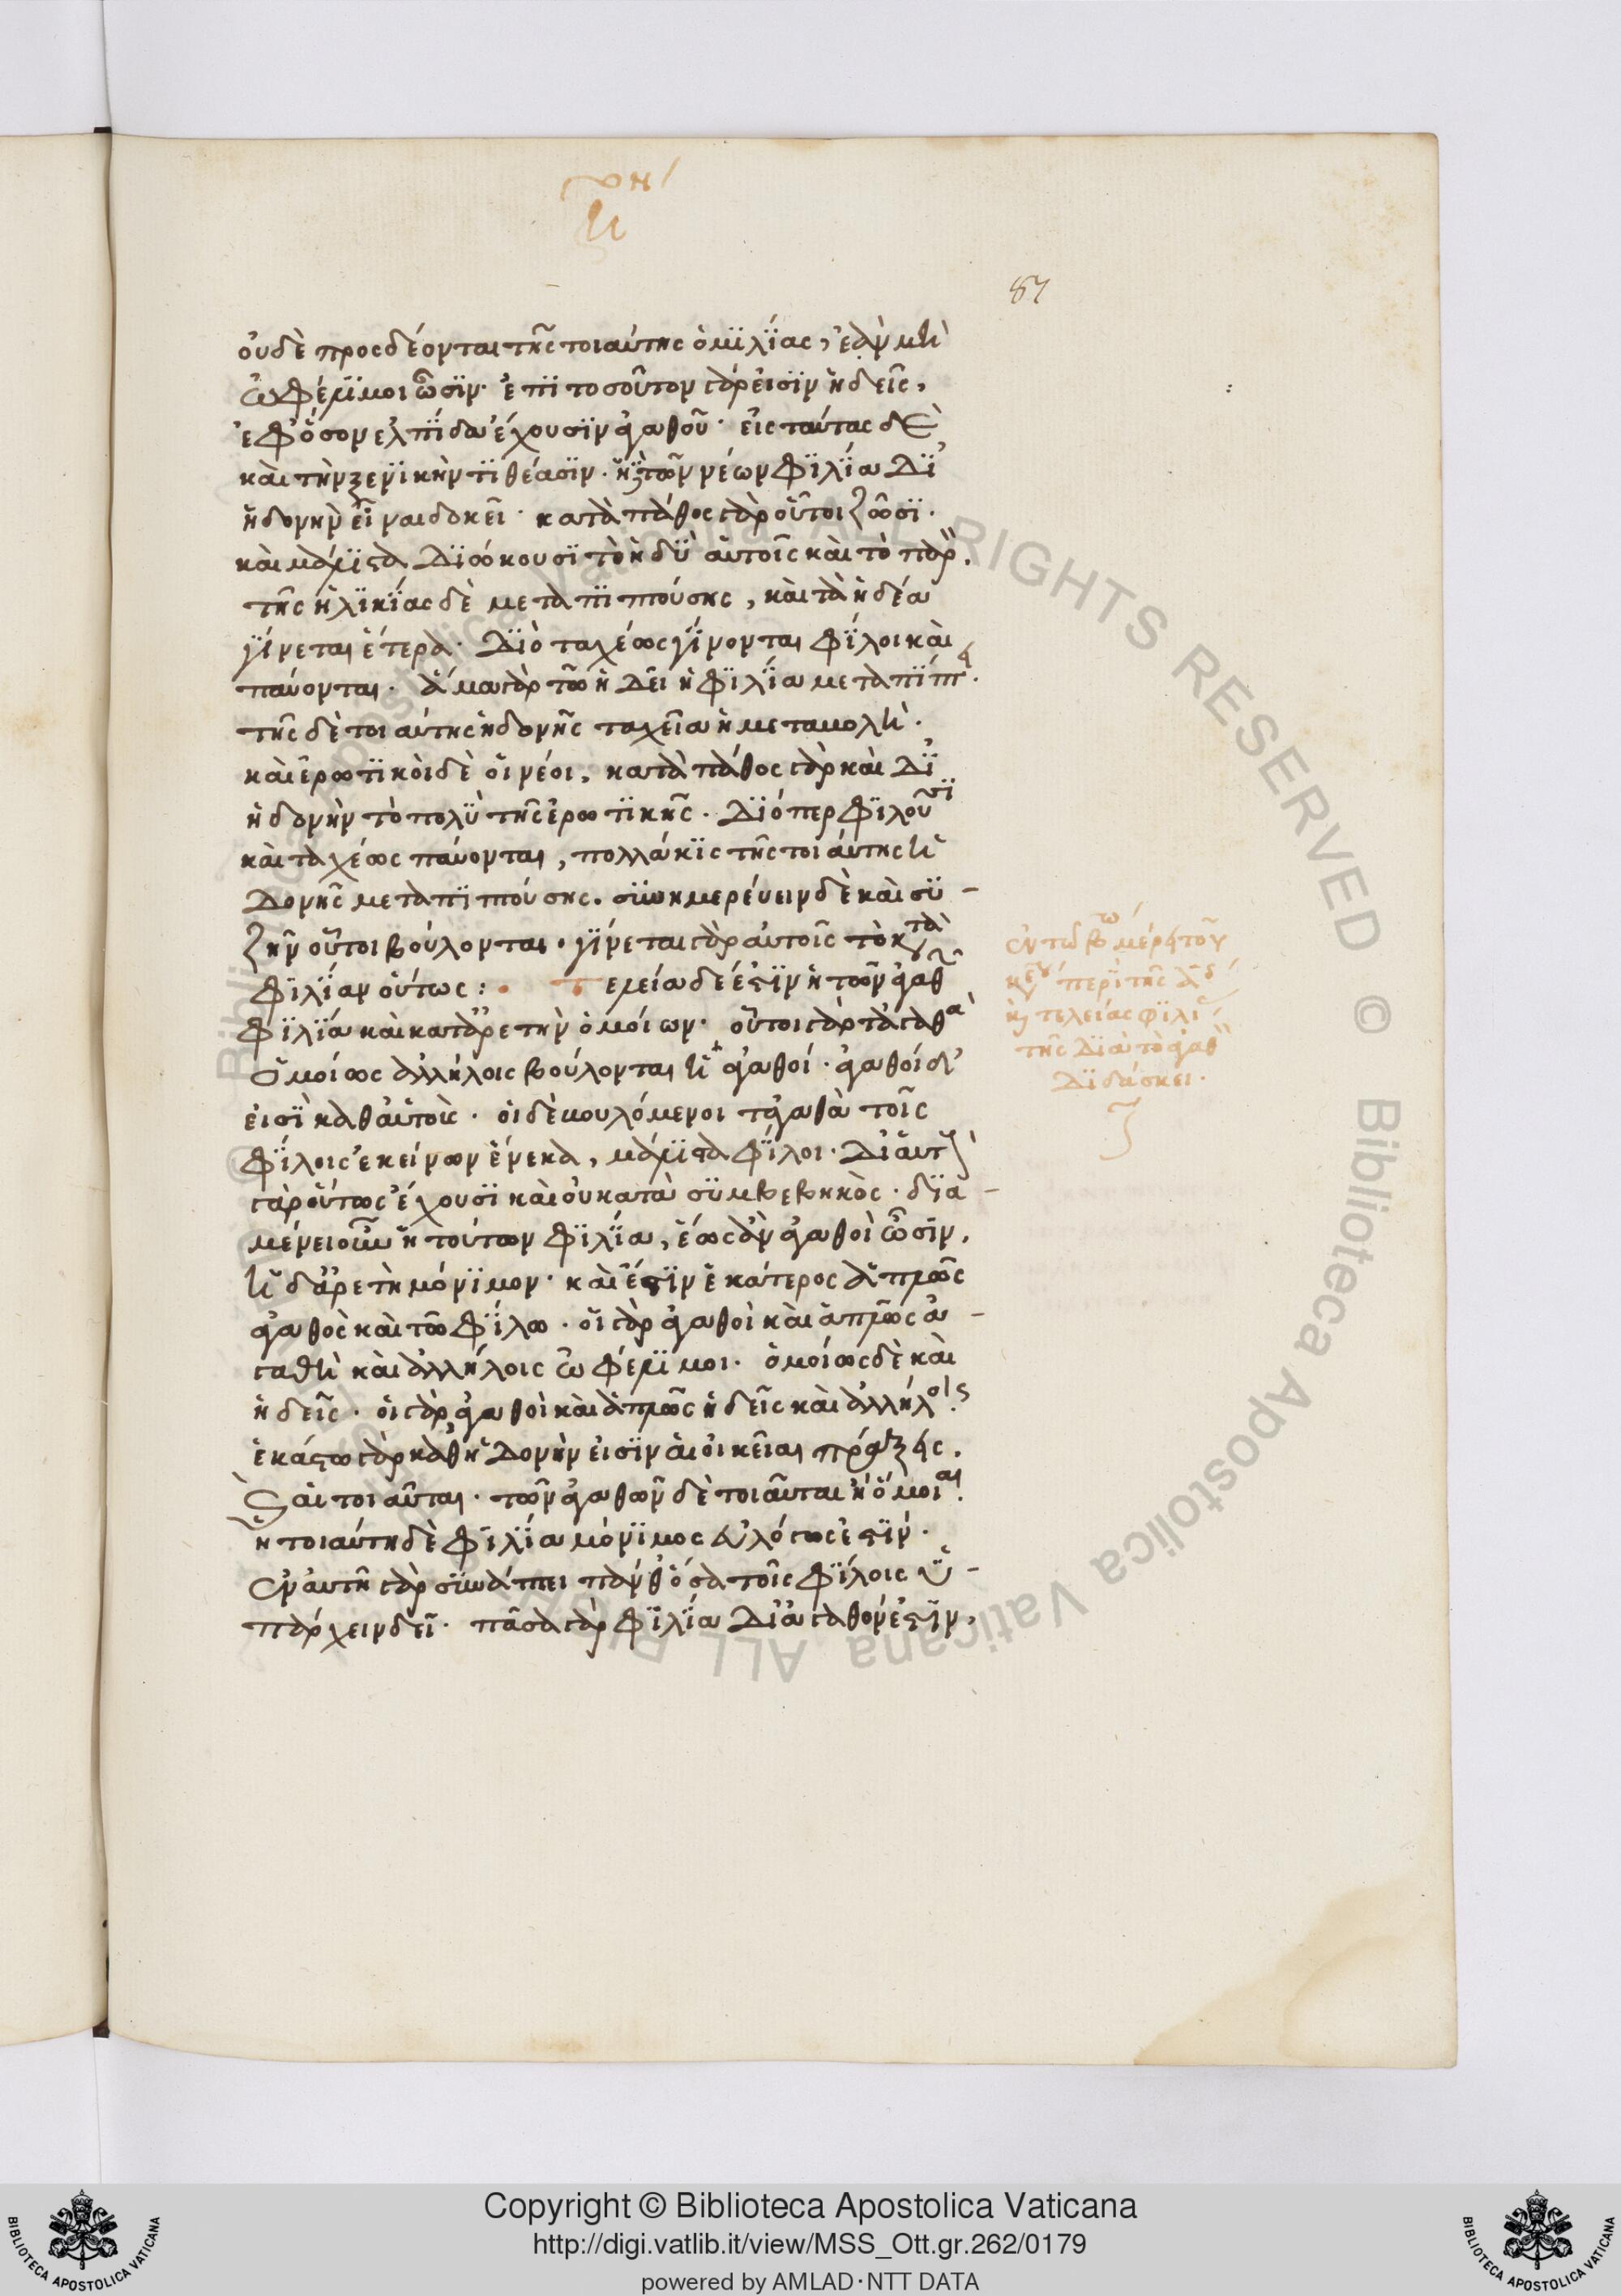 87
οὐδὲ προσδέονται τῆς τοιαύτης ὁμιλίας, ἐὰν μὴ
ὠφέλιμοι ὦσϊν· ἐπὶ τοσοῦτον γάρ εἰσϊν ἡδεῖς,
ἐφόσον ἐλπίδα ἔχουσϊν ἀγαθοῦ· εἰς ταύτας δὲ
καὶ τὴν ξενϊκὴν τϊθέασϊν· ἡ τῶν νέων φϊλΐα δϊ
ἡδονὴν εἶναι δοκεῖ· κατὰ πάθος γὰρ οὗτοι ζῶσϊ·
καὶ μάλϊστα δϊώκουσϊ τὸ ἡδὺ αὑτοῖς καὶ τὸ παρὸ.
τῆς ἡλϊκίας δὲ μεταπϊπτούσης, καὶ τὰ ἡδέα
γίνεται ἕτερα· δϊὸ ταχέως γίνονται φΐλοι καὶ
παύονται· ἅμα γὰρ τῶ ἡδεῖ ἡ φϊλΐα μεταπΐπτει·
τῆς δὲ τοιαύτης ἡδονῆς ταχεῖα ἡ μεταβολὴ·
καὶ ἐρωτϊκοὶ δὲ οἱ νέοι, κατὰ πάθος γὰρ καὶ δϊ
ἡδονὴν τὸ πολὺ τῆς ἐρωτϊκῆς· δϊόπερ φϊλοῦσϊ
καὶ ταχέως παύονται, πολλάκϊς τῆς τοιαύτης ἡ
δονῆς μεταπϊπτούσης. συνημερεύειν δὲ καὶ συ-
ζῆν οὗτοι βούλονται· γΐνεται γὰρ αὐτοῖς τὸ κατὰ
φϊλΐαν οὕτως: τελεία δέ ἐστϊν ἡ τῶν ἀγαθῶν
φϊλΐα καὶ κατ ἀρετὴν ὁμοίων· οὗτοι γὰρ τἀγαθὰ
ὁμοίως ἀλλήλοις βούλονται ἧ ἀγαθοί· ἀγαθοί δ
εἰσϊ καθ αὑτούς· οἱ δὲ βουλόμενοι τἀγαθὰ τοῖς
φΐλοις ἐκείνων ἕνεκα, μάλϊστα φΐλοι· δϊ αὑτοὺς
γὰρ οὕτως ἔχουσϊ καὶ οὐ κατὰ συμβεβηκὸς· δϊα-
μένει οὖν ἡ τούτων φϊλΐα, ἕως ἂν ἀγαθοὶ ὦσϊν,
ἡ δ ἀρετὴ μόνϊμον· καὶ ἔστϊν ἑκάτερος ἁπλῶς
ἀγαθὸς καὶ τῶ φΐλω· οἱ γὰρ ἀγαθοὶ καὶ ἁπλῶς ἀ-
γαθὴ καὶ ἀλλήλοις ὠφέλϊμοι· ὁμοίως δὲ καὶ
ἡδεῖς· οἱ γὰρ ἀγαθοὶ καὶ ἁπλῶς ἡδεῖς καὶ ἀλλήλοις.
ἑκάστω γὰρ καθ ἡδονὴν εἰσϊν αἱ οἰκεῖαι πράξεις.
καὶ αἱ τοιαῦται· τῶν ἀγαθῶν δὲ τοιαῦται ἢ ὅμοιαι.
ἡ τοιαύτη δὲ φϊλΐα μόνϊμος εὐλόγως ἐστΐν·
ἐν αὐτῆ γὰρ συνάπτει πάνθ ὅσα τοῖς φΐλοις ὑ-
πάρχειν δεῖ· πᾶσα γὰρ φϊλΐα δϊ ἀγαθόν ἐστϊν,
ἐν τῶ β μέρει τοῦ
περὶ τῆς
τελείας φϊλίας
τῆς δϊὰ τὸ ἀγαθὸν
δϊδάσκει.
Copyright © Biblioteca Apostolica Vaticana
http://digi.vatlib.it/view/MSS_Ott.gr.262/0179
powered by AMLAD·NTT DATA
BIBLIOTECA APOSTOLICA VATICANA
BIBLIOTECA APOSTOLICA VATICANA